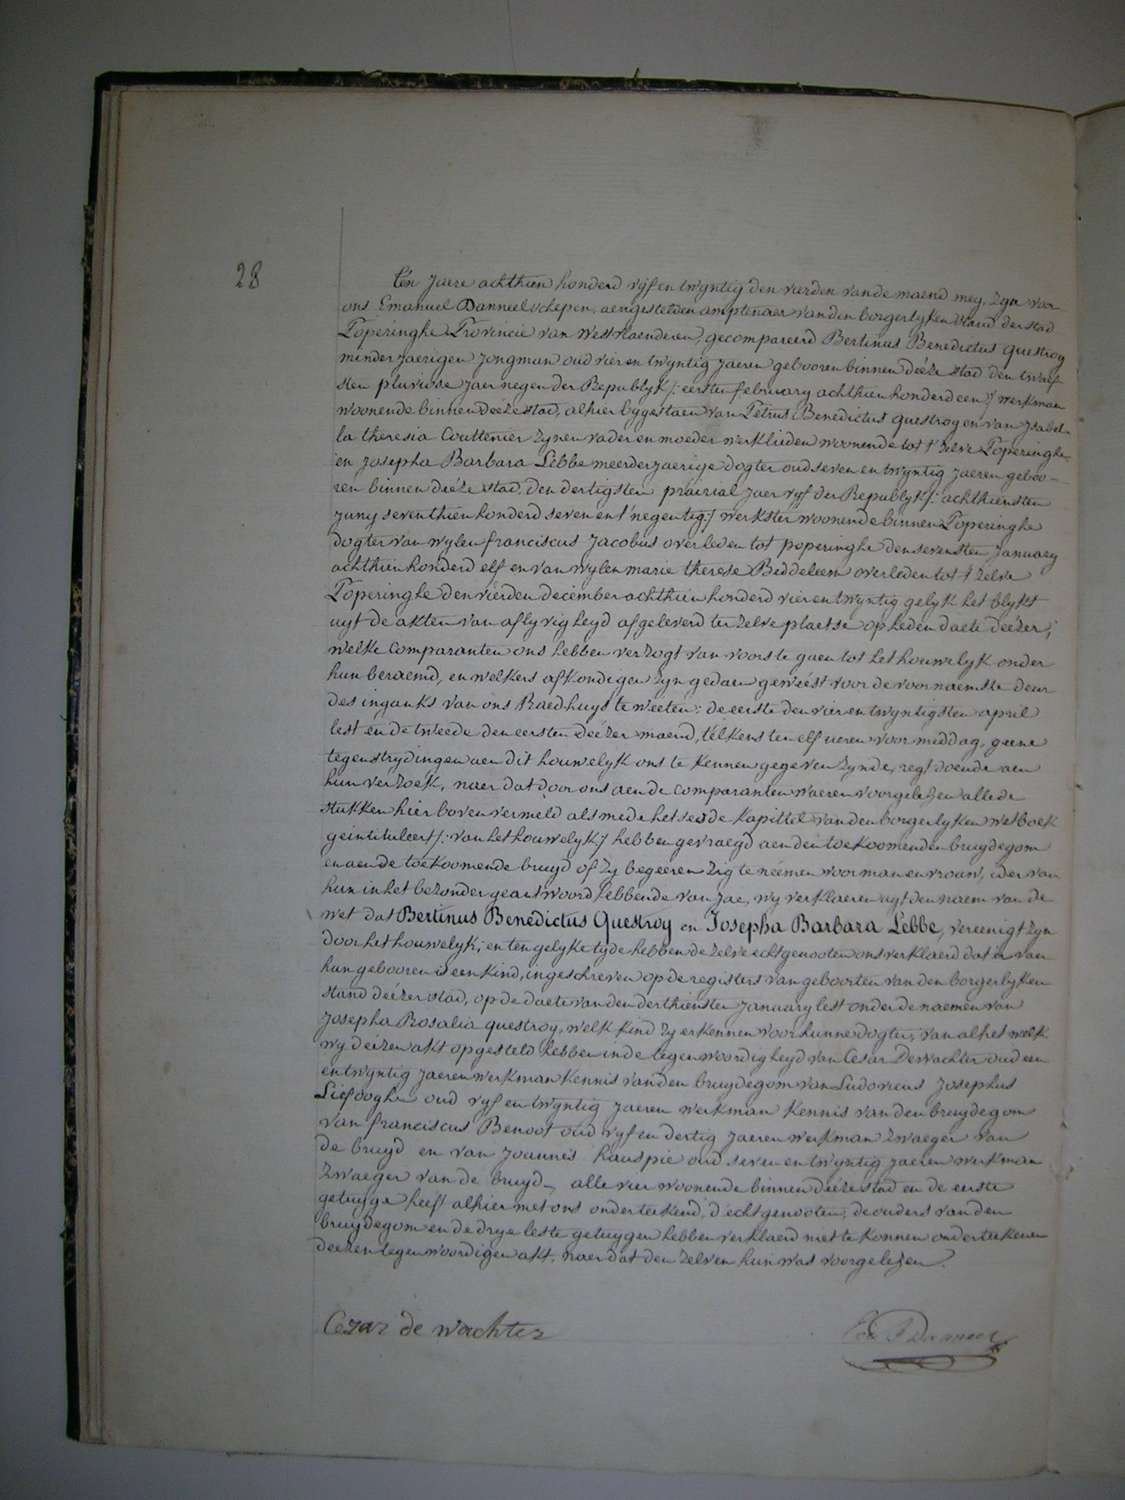 28
Ten Jaere achthien honderd vyf en twyntig den vierden van de maend mey, zyn voor
ons Emanuel Danneel schepen, aengestelden amptenaer van den borgerlyken stand der stad
Poperinghe Provincie van Westvlaenderen, gecompareerd Bertinus Benedictus Questroy
minderjaerigen jongman oud vier en twyntig jaeren gebooren binnen deéze stad den twaelf
sten pluviose jaer negen der Republyk /: eersten february achthien honderd een :/ werkman
woonende binnen deéze stad, alhier bygestaen van Petrus Benedictus Questroy en van Isabel-
la theresia Couttenier zynen vader en moeder werklieden woonende tot 't zelve Poperinghe
en Josepha Barbara Lebbe meerderjaerige dogter oud seven en twyntig jaeren geboo-
ren binnen deéze stad, den dertigsten prairial jaer vyf der Republyk /: achthiensten
juny seventhien honderd seven en t'negentig :/ werkster woonende binnen Poperinghe
dogter van wylen franciscus Jacobus overleden tot poperinghe den sevensten January
achthien honderd elf en van wylen marie therese Biddeleem overleden tot 't zelve
Poperinghe den vierden december achthien honderd vier en twyntig gelyk het blykt
uyt de akten van aflyvigheyd afgeleverd ter zelve plaetse op heden daete deézer;
welke Comparanten ons hebben verzogt van voorste gaen tot het houwelyk onder
hun beraemd, en welkers afkondigen zyn gedaen geweést voor de voornaemste deur
des inganks van ons Raedhuys te weéten: de eerste den vier en twyntigsten april
lest en de tweede den eersten deézer maend, télkens ten elf ueren voormiddag, geene
tegenstrydingen aen dit houwelyk ons te kennen gegeven zynde, regt doende aen
hun verzoék, naer dat door ons aen de comparanten waeren voorgelezen alle de
stukken hier boven vermeld als mede het sesde kapittel van den borgerlyken wetboek
geintituleert /: van het houwelyk :/ hebben gevraegd aen den toekoomenden bruydegom
en aen de toekoomende bruyd of zy begeeren zig te neémen voor man en vrouw, ider van
hun in het bezonder geantwoord hebbende van Jae, wy verklaeren uyt den naem van de
wet dat Bertinus Benedictus Questroy en Josepha Barbara Lebbe, vereenigt zyn
door het houwelyk; en ten gelyke tyde hebben de zelve echtgenooten ons verklaerd dat er van
hun gebooren is een kind, ingeschreven op de registers van geboorten van den borgerlyken
stand deézer stad, op de daete van den derthiensten January lest onder de naemen van
Josepha Rosalia questroy, welk kind zy erkennen voor hunne dogter, van al het welk
wy deézen akt opgesteld hebben in de tegenwoordigheyd van Cesar Dewachter oud een
en twyntig jaeren werkman kennis van den bruydegom van Ludovicus Josephus
Liefooghe oud vyf en twyntig jaeren werkman kennis van den bruydegom
van franciscus Benoot oud vyf en dertig jaeren werkman zwaeger van
de bruyd en van Joannes hauspie oud seven en twyntig jaeren werkman
zwaeger van de bruyd, alle vier woonende binnen deéze stad en de eerste
getuyge heeft alhier met ons onderteekend, d'echtgenooten, de ouders van den
bruydegom en de drye leste getuygen hebben verklaerd niet te konnen onderteekenen
deézen tegenwoordigen akt, naer dat den zelven hun was voorgelezen.
Cezar de wachter
Danneel